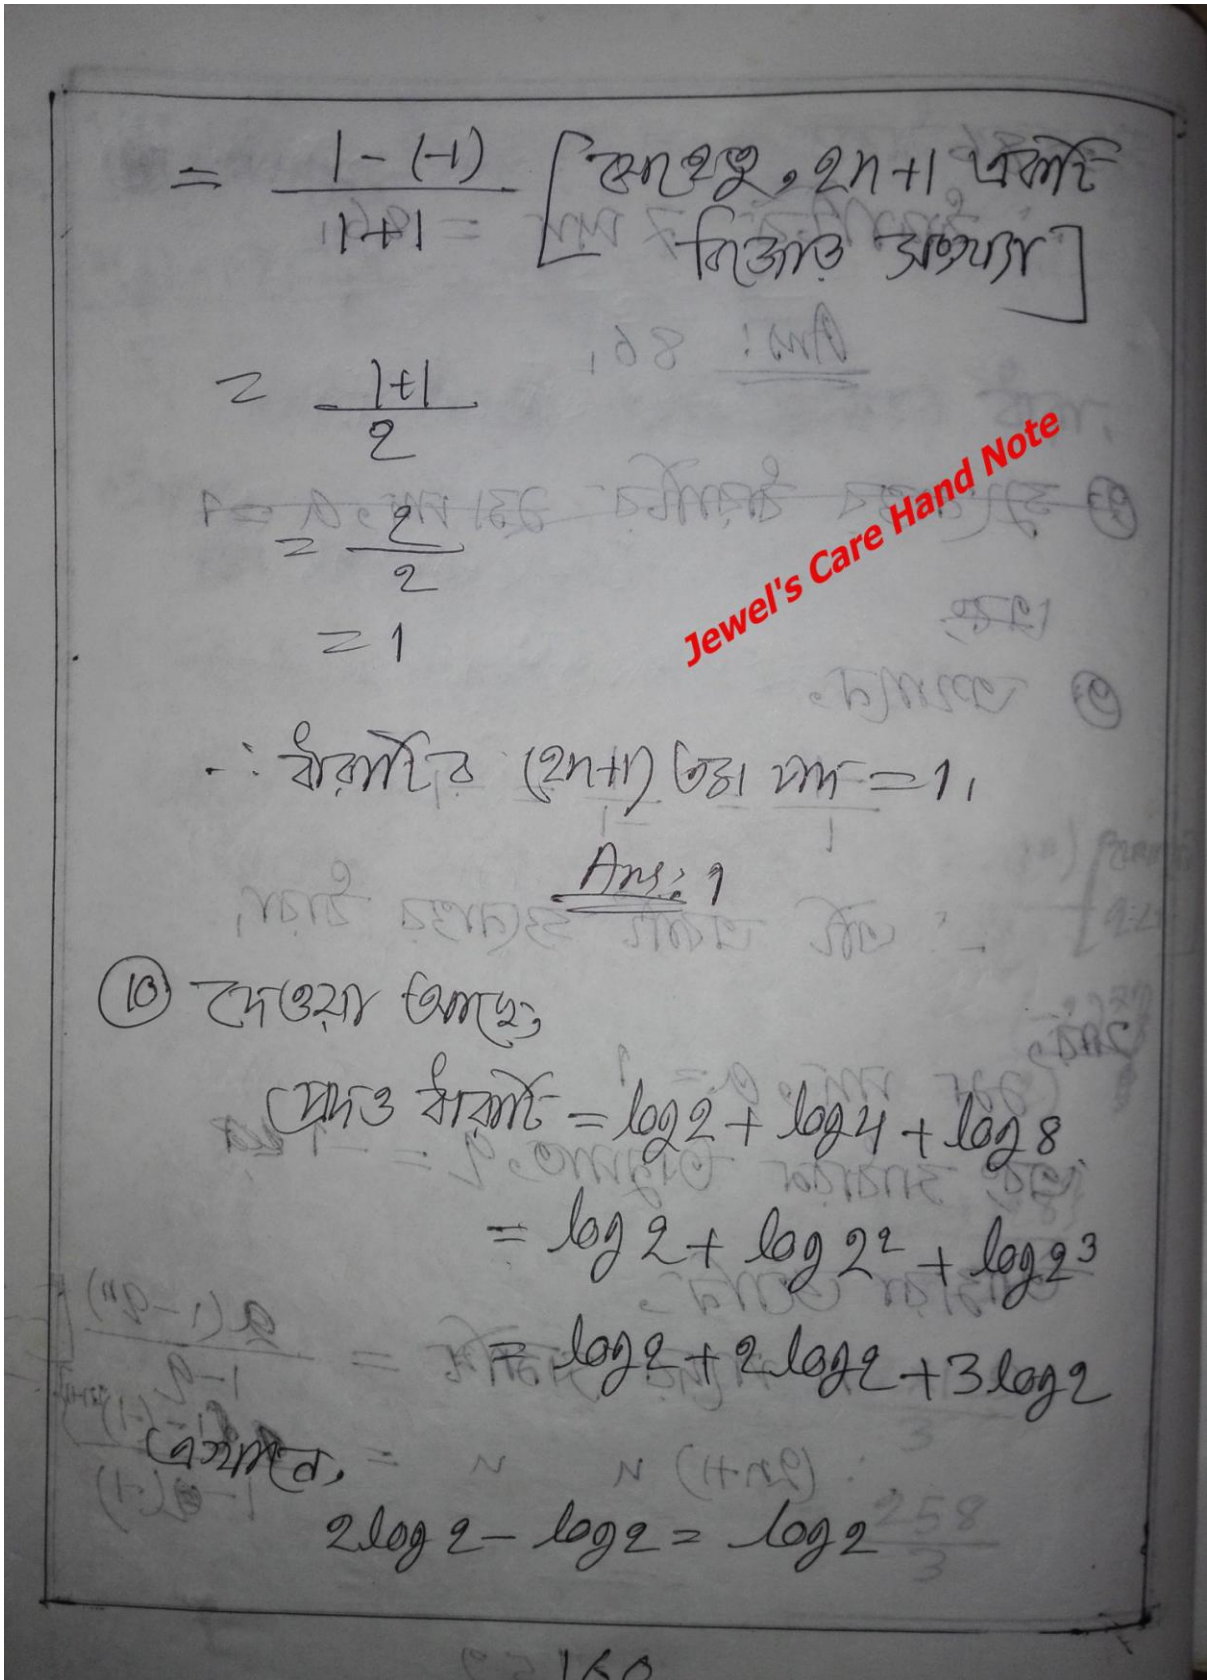 = \frac{1-(-1)}{1+1} [যেহেতু, 2n+1 একটি
বিজোড় সংখ্যা]
= \frac{1+1}{2}
= \frac{2}{2}
= 1
Jewel's Care Hand Note
∴ ধারাটির (2n+1) তম পদ = 1।
Ans: 1
(10) দেওয়া আছে,
প্রদত্ত ধারাটি = log2 + log4 + log8
= log2 + log2² + log2³
= log2 + 2log2 + 3log2
এখানে,
2log2 - log2 = log2
160